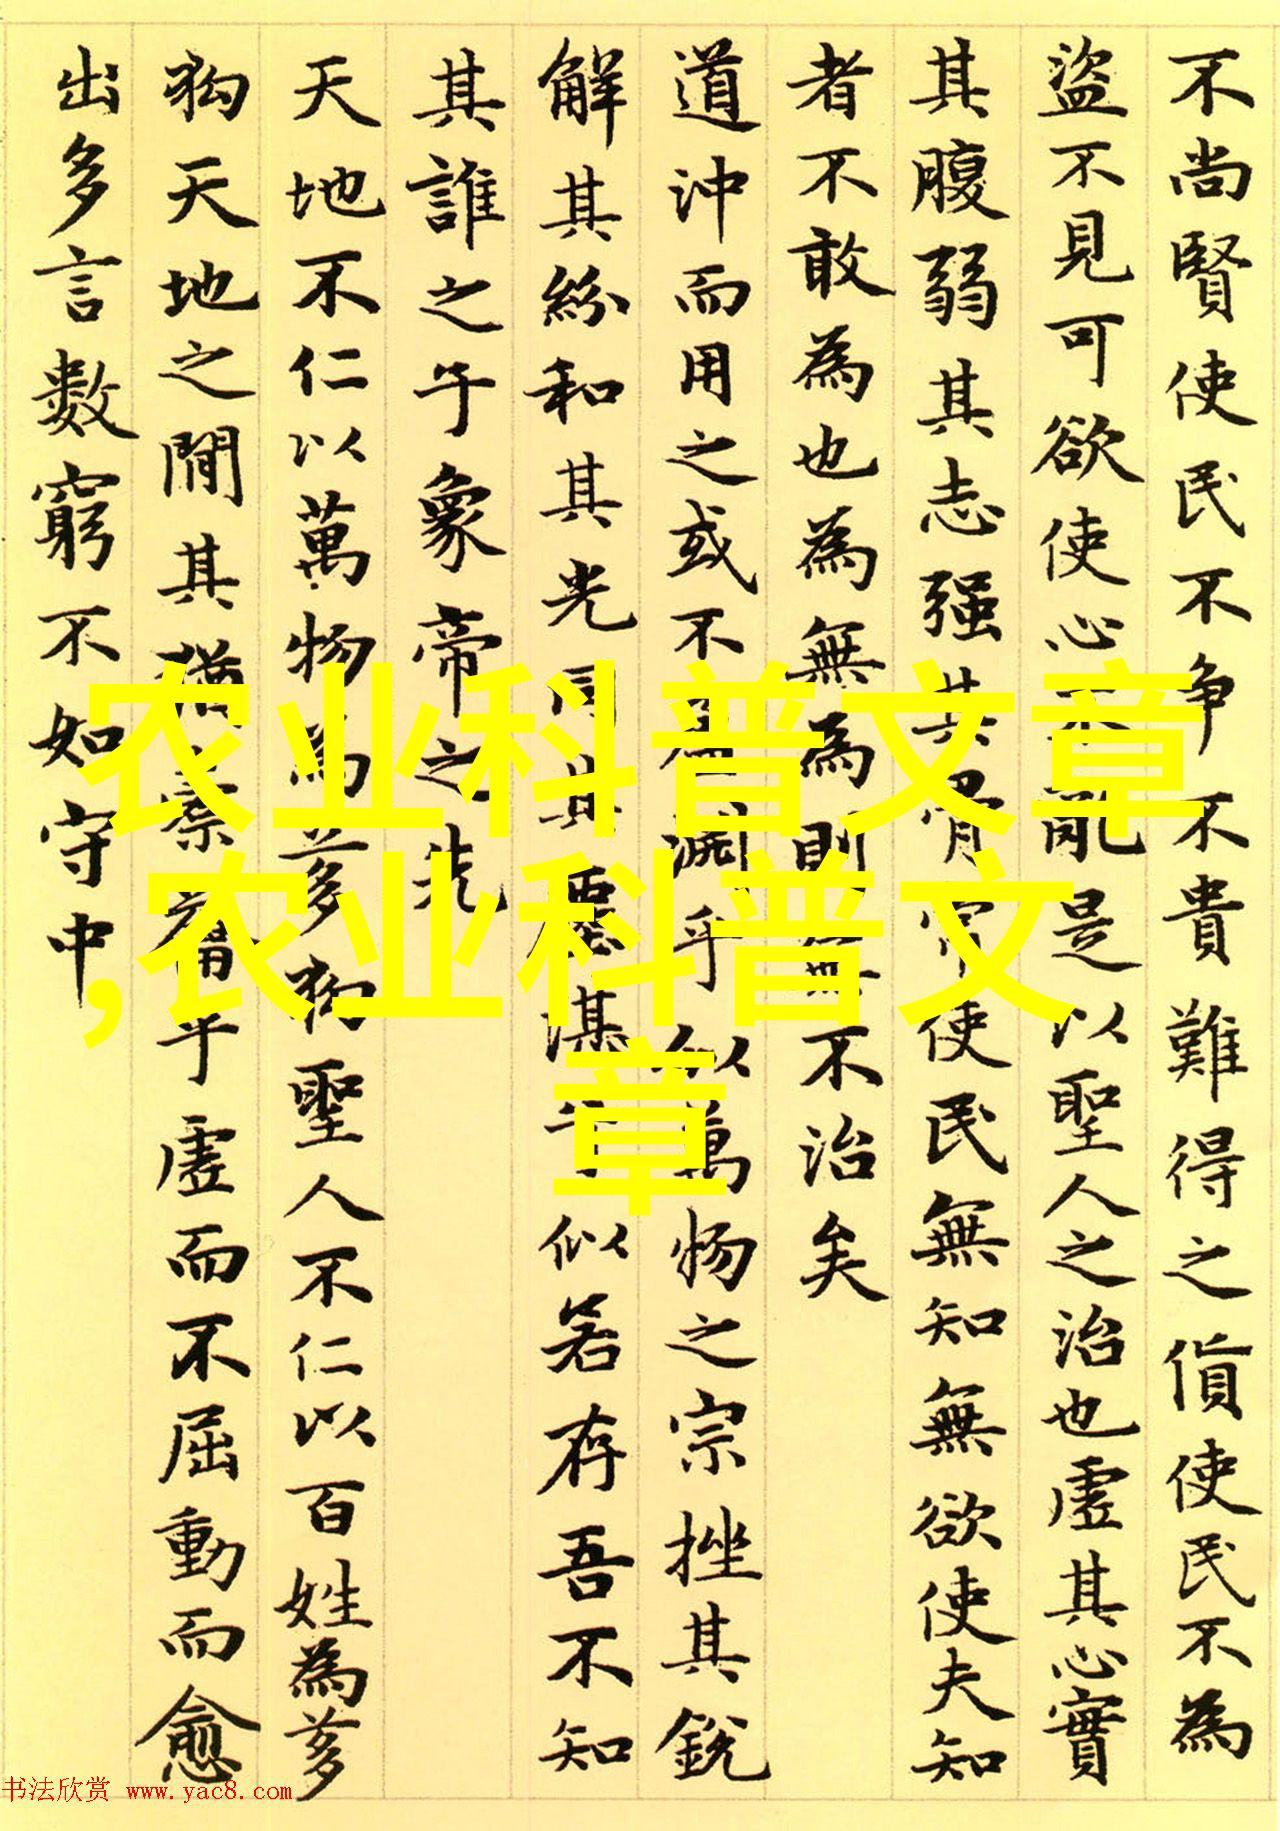 不尚賢使民不争不貴難得之貨使民不為
盜不見可欲使心不亂是以聖人之治也虛其心實
其腹弱其志强其骨常使民無知無欲使夫知
者不敢為也為無為則無不治矣
道沖而用之或不盈淵乎似萬物之宗挫其銳
解其紛和其光同其塵湛乎似若存吾不知
其誰之子象帝之先
天地不仁以萬物為芻狗聖人不仁以百姓為芻
狗天地之間其猶橐籥乎虛而不屈動而愈
出多言數窮不如守中
农业科普文章
,农业科普文
章
书法欣赏 www.yac8.com